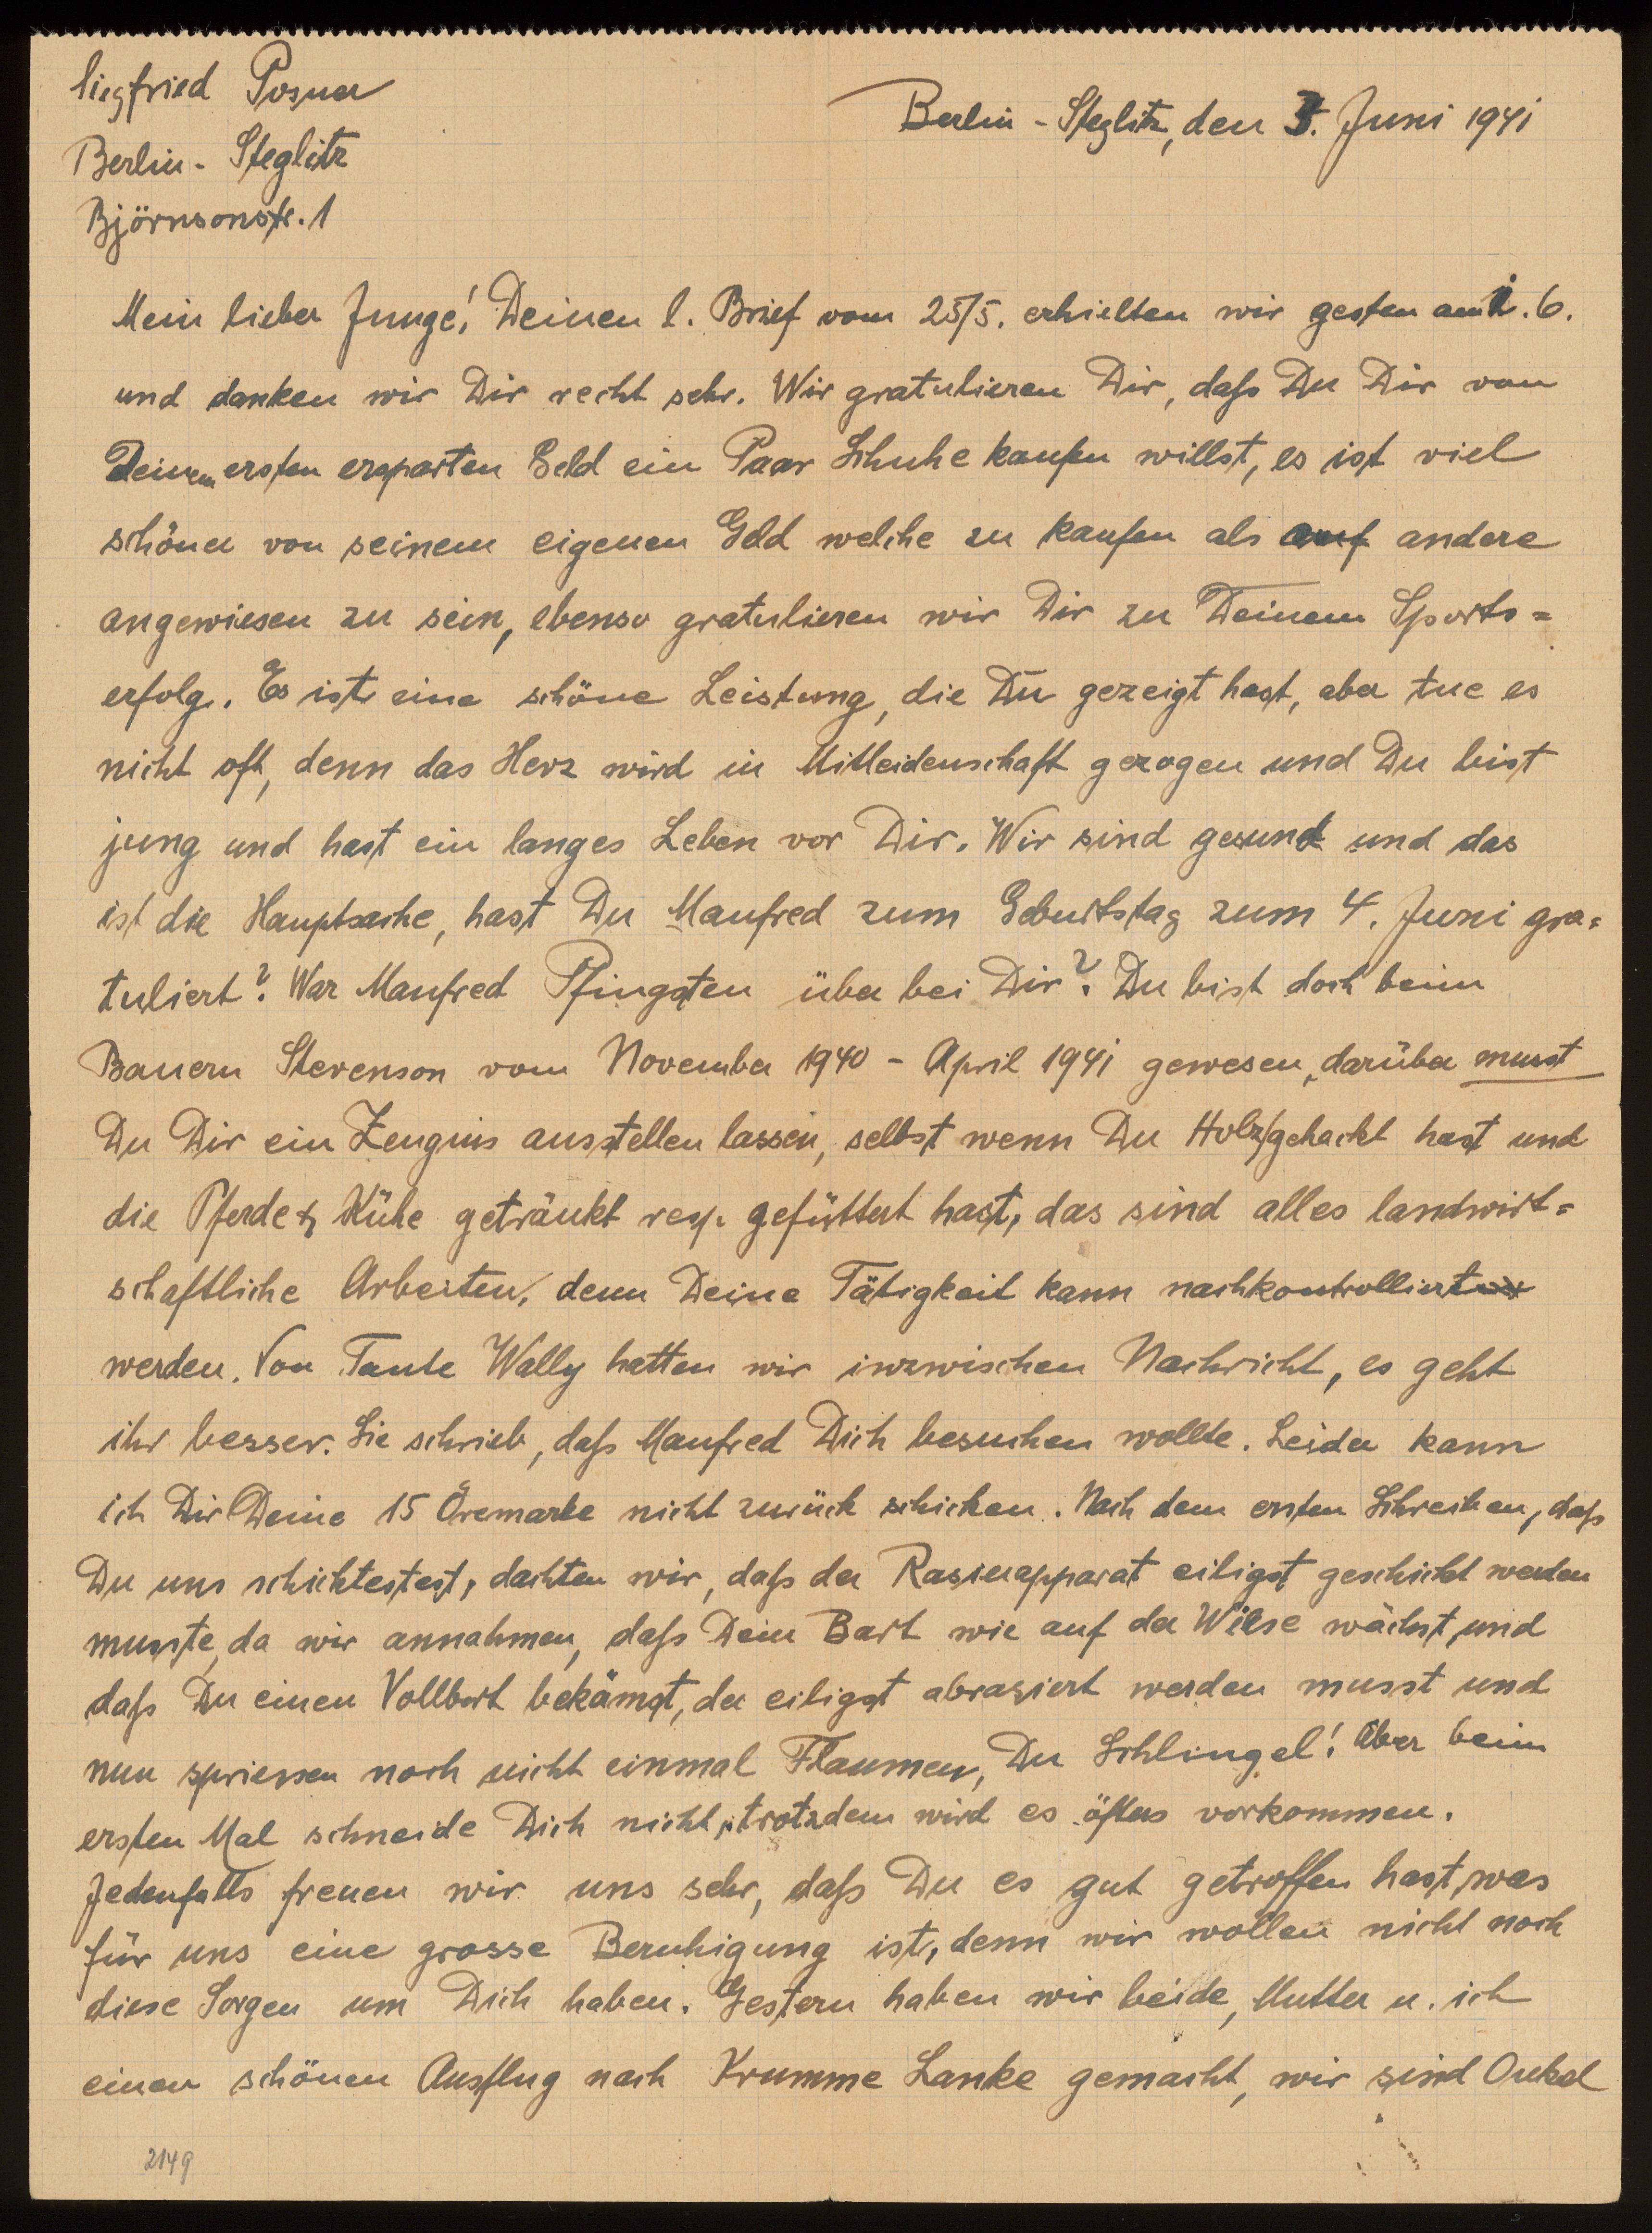 Siegfried Posner
Berlin-Steglitz, den 3. Juni 1941
Berlin-Steglitz
Björnsonstr. 1
Mein lieber Junge! Deinen l. Brief vom 25/5. erhielten wir gesten am 1. 6.
und danken wir Dir recht sehr. Wir gratulieren Dir, daß Du Dir von
Deinem ersten ersparten Geld ein Paar Schuhe kaufen willst, es ist viel
schöner von seinem eigenen Geld welche zu kaufen als auf andere
angewiesen zu sein, ebenso gratulieren wir Dir zu Deinem Sports=
erfolg. Es ist eine schöne Leistung, die Du gezeigt hast, aber tue es
nicht oft, denn das Herz wird in Mitleidenschaft gezogen und Du bist
jung und hast ein langes Leben vor Dir. Wir sind gesund und das
ist die Hauptsache, hast Du Manfred zum Geburtstag zum 4. Juni gra=
tuliert? War Manfred Pfingsten über bei Dir? Du bist doch beim
Bauern Stevenson vom November 1940 - April 1941 gewesen, darüber musst
Du Dir ein Zeugnis ausstellen lassen, selbst wenn Du Holz gehackt hast und
die Pferde & Kühe getränkt resp. gefüttert hast, das sind alles landwirt=
schaftliche Arbeiten, denn Deine Tätigkeit kann nachkontrolliert
werden. Von Tante Wally hatten wir inzwischen Nachricht, es geht
ihr besser. Sie schrieb, daß Manfred Dich besuchen wollte. Leider kann
ich Dir Deine 15 Öremarke nicht zurück schicken. Nach dem ersten Schreiben, daß
Du uns schicktestest, dachten wir, daß der Rasierapparat eiligst geschickt werden
musste, da wir annahmen, daß Dein Bart wie auf der Wiese wächst, und
daß Du einen Vollbart bekämst, der eiligst abrasiert werden musst und
nun spriessen noch nicht einmal Flaumen, Du Schlingel! Aber beim
ersten Mal schneide Dich nicht, trotzdem wird es öfters vorkommen.
Jedenfalls freuen wir uns sehr, daß Du es gut getroffen hast, was
für uns eine grosse Beruhigung ist, denn wir wollen nicht noch
diese Sorgen um Dich haben. Gestern haben wir beide, Mutter u. ich
einen schönen Ausflug nach Krumme Lanke gemacht, wir sind Onkel
2149